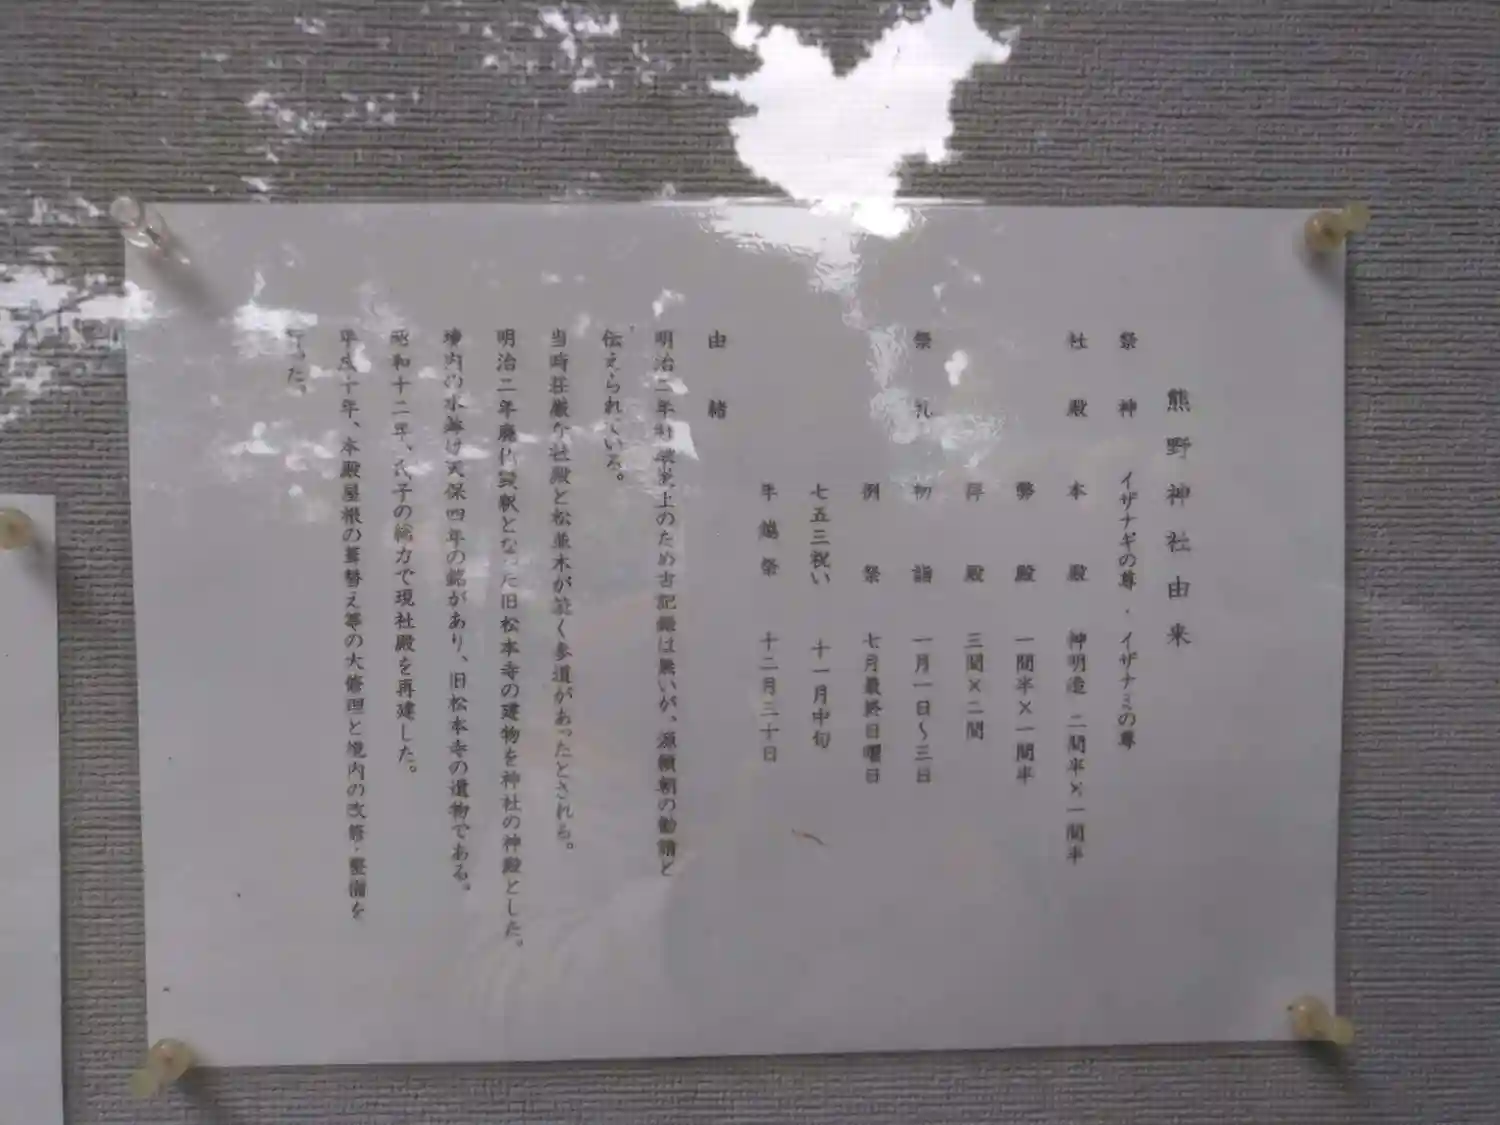 熊野神社由来
祭神 イザナギの尊・イザナミの尊
社殿 本殿 神明造 二間半×一間半
幣殿 一間半×一間半
拝殿 三間×二間
祭礼 初詣 一月一日～三日
例祭 七月最終日曜日
七五三祝い 十一月中旬
年越祭 十二月三十日
由緒
明治二年 上のため古記録は無いが、源頼朝の勧請と
伝えられている。
当時荘厳な社殿と松並木が続く参道があったとされる。
明治二年廃仏毀釈となった旧松本寺の建物を神社の神殿とした。
境内の水 け天保四年の銘があり、旧松本寺の遺物である。
昭和十二年、氏子の協力で現社殿を再建した。
平成十年、本殿屋根の葺替え等の大修理と境内の改修・整備を
った。